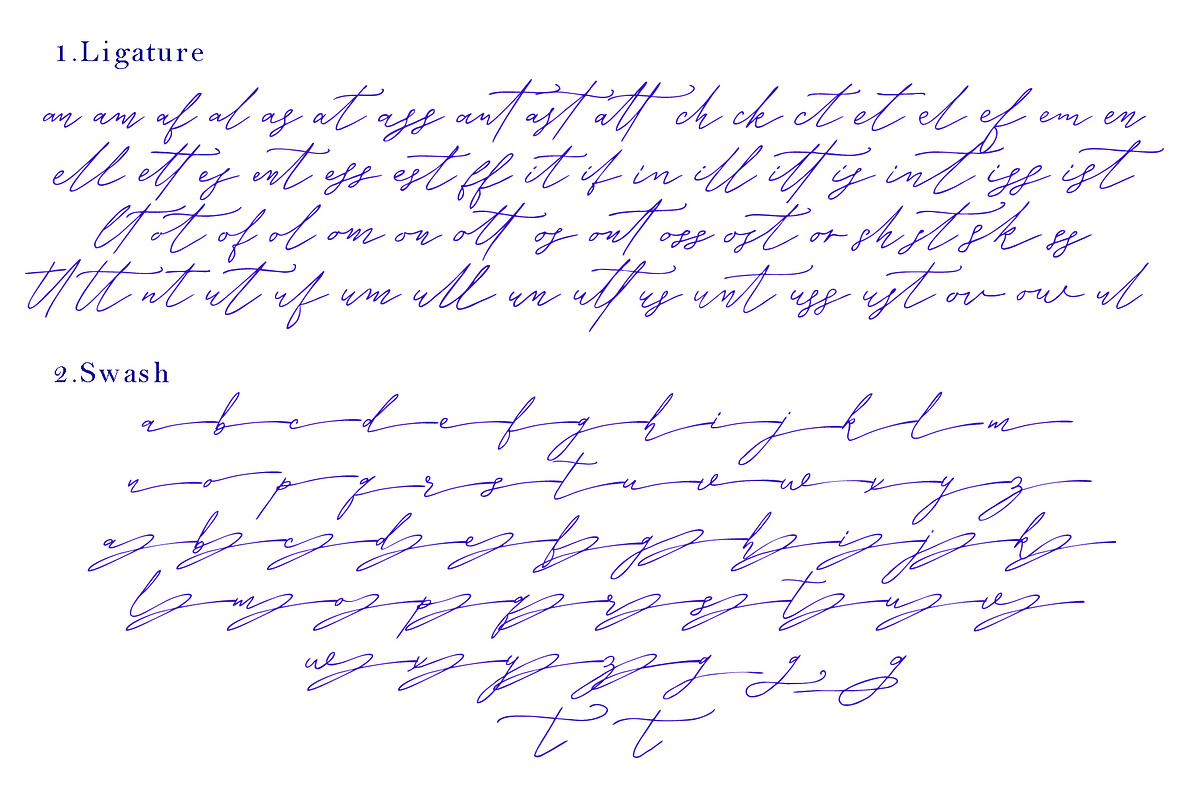 1.Ligature
an am af al as at ass ant ast att ch ck ct et el ef em en
ell ett es ent ess est ff it if in ill itt is int iss ist
lt ot of ol om on ott os ont oss ost or sh st sk ss
tl tt nt ut uf um ull un utt us unt uss ust ov ow ul
2.Swash
a b c d e f g h i j k l m
n o p q r s t u v w x y z
a b c d e f g h i j k
l m o p q r s t u v
w x y z g g g
t t